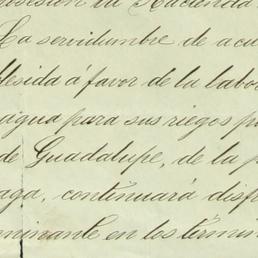 posesión la Hacienda
La servidumbre de acu
blesida á favor de la labor
agua para sus riegos po
de Guadalupe, de la p
aga, continuará disf
minante en los términ